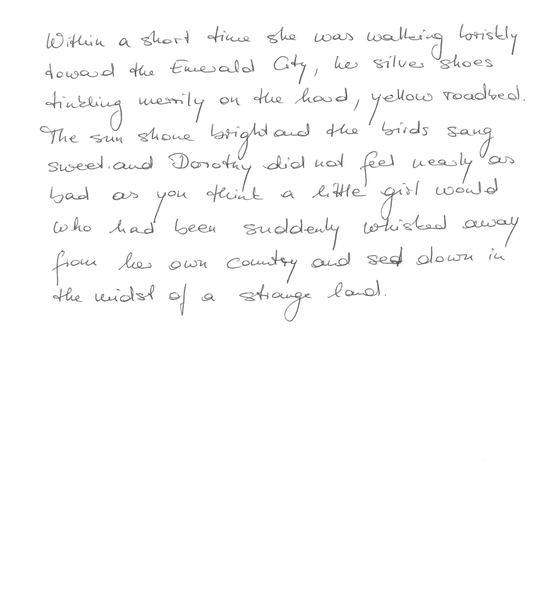 Within a short time she was walking briskly
toward the Emerald City, her silver shoes
tinkling merrily on the hard, yellow roadbed.
The sun shone bright and the birds sang
sweet. and Dorothy did not feel nearly as
bad as you think a little girl would
who had been suddenly whisked away
from her own country and set down in
the midst of a strange land.